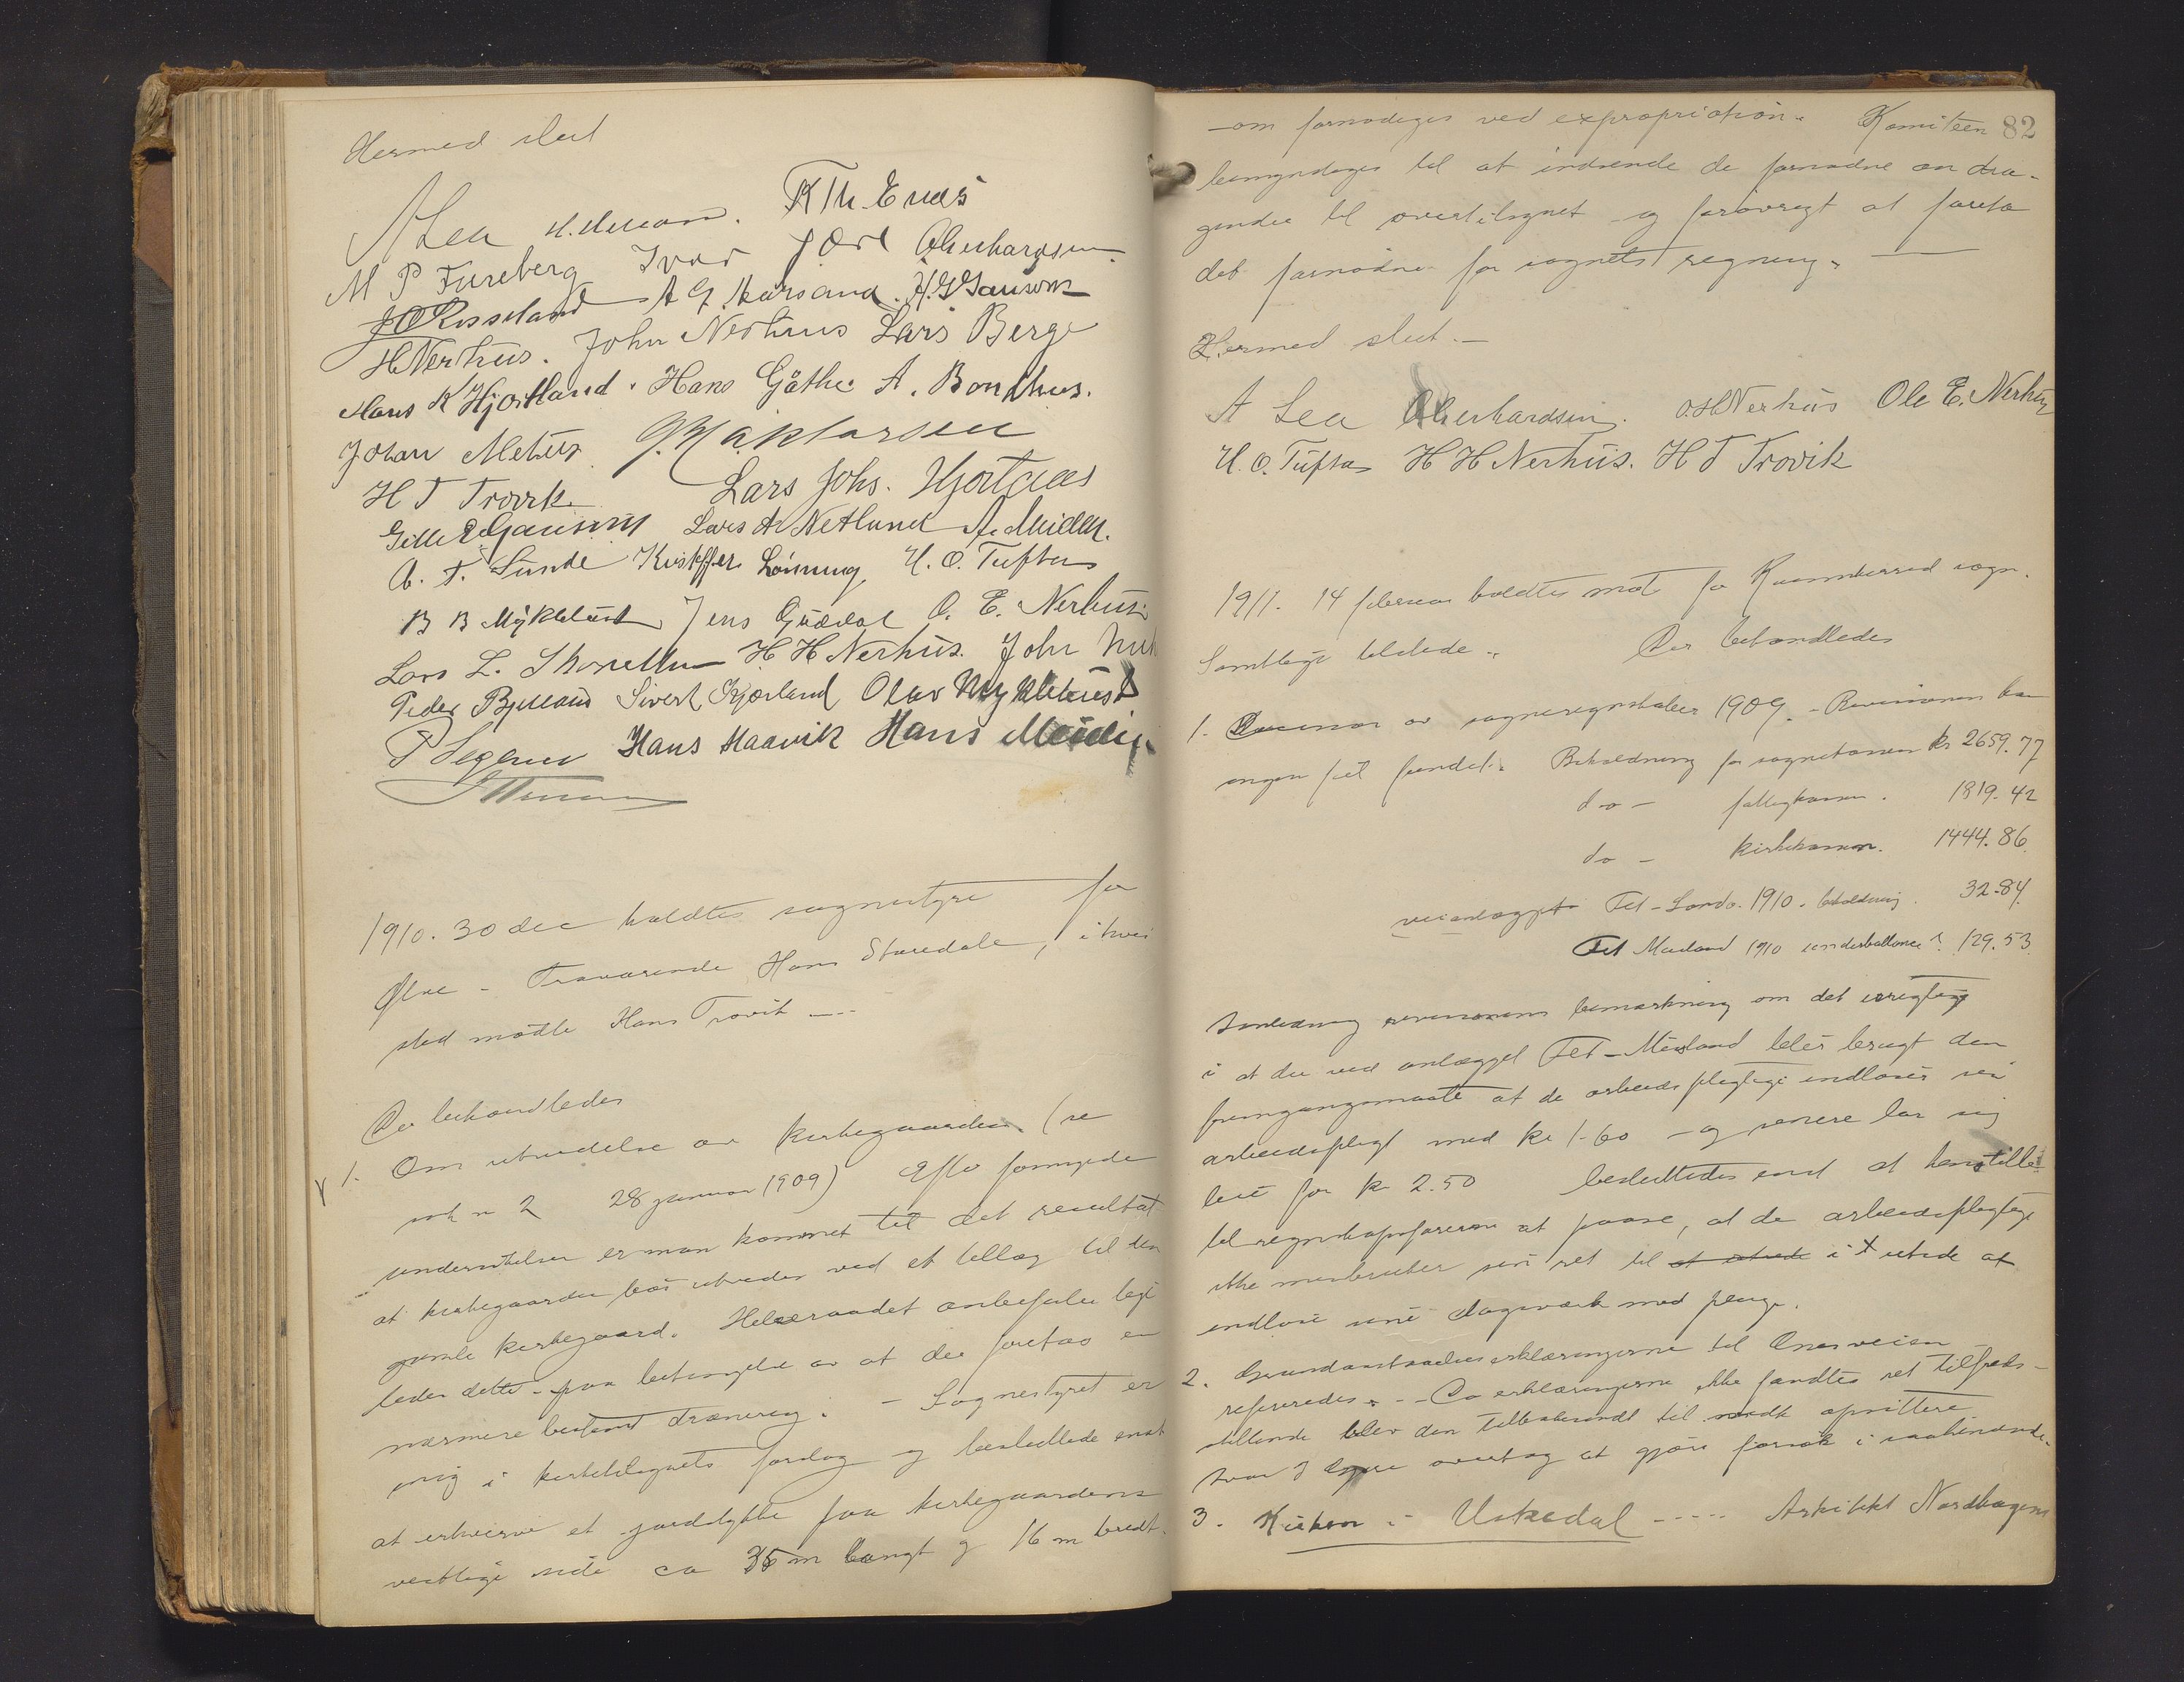 Hermed slut
A Lea K Th. Enæs
M P Fureberg Ivar Jørl O Gerhardsen
J O Rosseland A G Aarsand. H. G Gausvik
H Nerhus. John Nerhus Lars Berge
Hans K Hjortland. Hans Gåthe A. Bondhus.
Johan Mehus
H T Trovik Lars Johs. Hjortaas
Lars A Netlund A. Meidell.
A. T. Sunde Kristoffer Lønning, H. O. Tufta
B B Myklebust Jens Guddal O. E. Nerhus
Lars L. H H Nerhus. John
Peder Sivert Kjærland Olav Myklebust
P Segeros Hans Haavik Hans
1910. 30 dec holdtes sognestyre for
Ølve - Fraværende Hans Staredale, i hvis
sted mødte Hans Trovik
Der behandledes
1. Om utvidelse av kirkegaarden (se
sak n 2 28 januar 1909) Efter fornyede
undersøkelser er man kommet til det resultat
at kirkegaarden bør utvides ved et tillæg til den
gamle kirkegaard. Helseraadet anbefaler lige
ledes dette paa betingelse av at der foretas en
nærmere bestemt drænering. - Sognestyret er
enig i kirketilsynets forslag og besluttede enst
at erhverve et jordstykke paa kirkegaardens
vestlige side ca 35 m langt og 16 m bredt.
82
-om fornødiges ved expropriation. Komiteen
bemyndiges til at indsende de fornødne andra-
gender til overtilsynet og forøvrigt at foreta
det fornødne for sognets regning.
Hermed slut.
A Lea O Gerhardsen. O. H Nerhus Ole E. Nerhus
H. O. Tufta H H Nerhus. H T Trovik
1911. 14 februar holdtes møt for Kvinnherred sogn.
Samtlige tilstede. Der behandledes
1. Decision av sogneregnskaber 1909. - Revisionen har
ingen feil fundet. Beholdning for sognekassen kr 2659.77
do - fattigkassen. 1819.42
do - kirkekassen. 1444.86
veianlægget Fet - Sunde. 1910. beholdning. 32.84
Fet Mæland 1910 underballance 129.53
Anledning revisionens bemærkning om det uregtige
i at der ved anlægget Fet - Mæland blev brugt den
fremgangsmaate at de arbeidspligtige indløser sin
arbeidspligt med kr 1.60 - og senere lar sig
leie for kr 2.50 besluttedes enst at henstille
til regnskapsføreren at paase, at de arbeidspligtige
ikke misbruker sin ret til at utrede i utide at
indløse sine dagsværk med penge.
2. Grundavstaaelseserklæringerne til Enesveien
refereredes. - Da erklæringerne ikke fandtes ret tilfreds-
stillende blev den tilbakesendt til opsittere
overtog at gjøre forsøk i saahenseende.
3. Kirken i Uskedal ----- Arkitekt Nordhagens